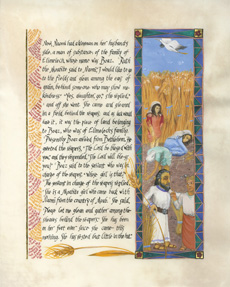 Now, Naomi had a kinsman on her husband's
side, a man of substance, of the family of
Elimelech, whose name was Boaz. Ruth
the Moabite said to Naomi, "I would like to go
to the fields and glean among the ears of
grain, behind someone who may show me
kindness." "Yes, daughter, go," she replied,
and off she went. She came and gleaned
in a field, behind the reapers, and as luck would
have it, it was the piece of land belonging
to Boaz, who was of Elimelech's family.
Presently Boaz arrived from Bethlehem. He
greeted the reapers, "The Lord be with
you," and they responded, "The Lord bless
you." Boaz said to the servant who was in
charge of the reapers, "Whose girl is that?"
The servant in charge of the reapers replied,
"She is a Moabite girl who came back with
Naomi from the country of Moab. She said,
Please let me glean and gather among the
sheaves behind the reapers. She has been
on her feet ever since she came this
morning. She has rested but little in the hut."